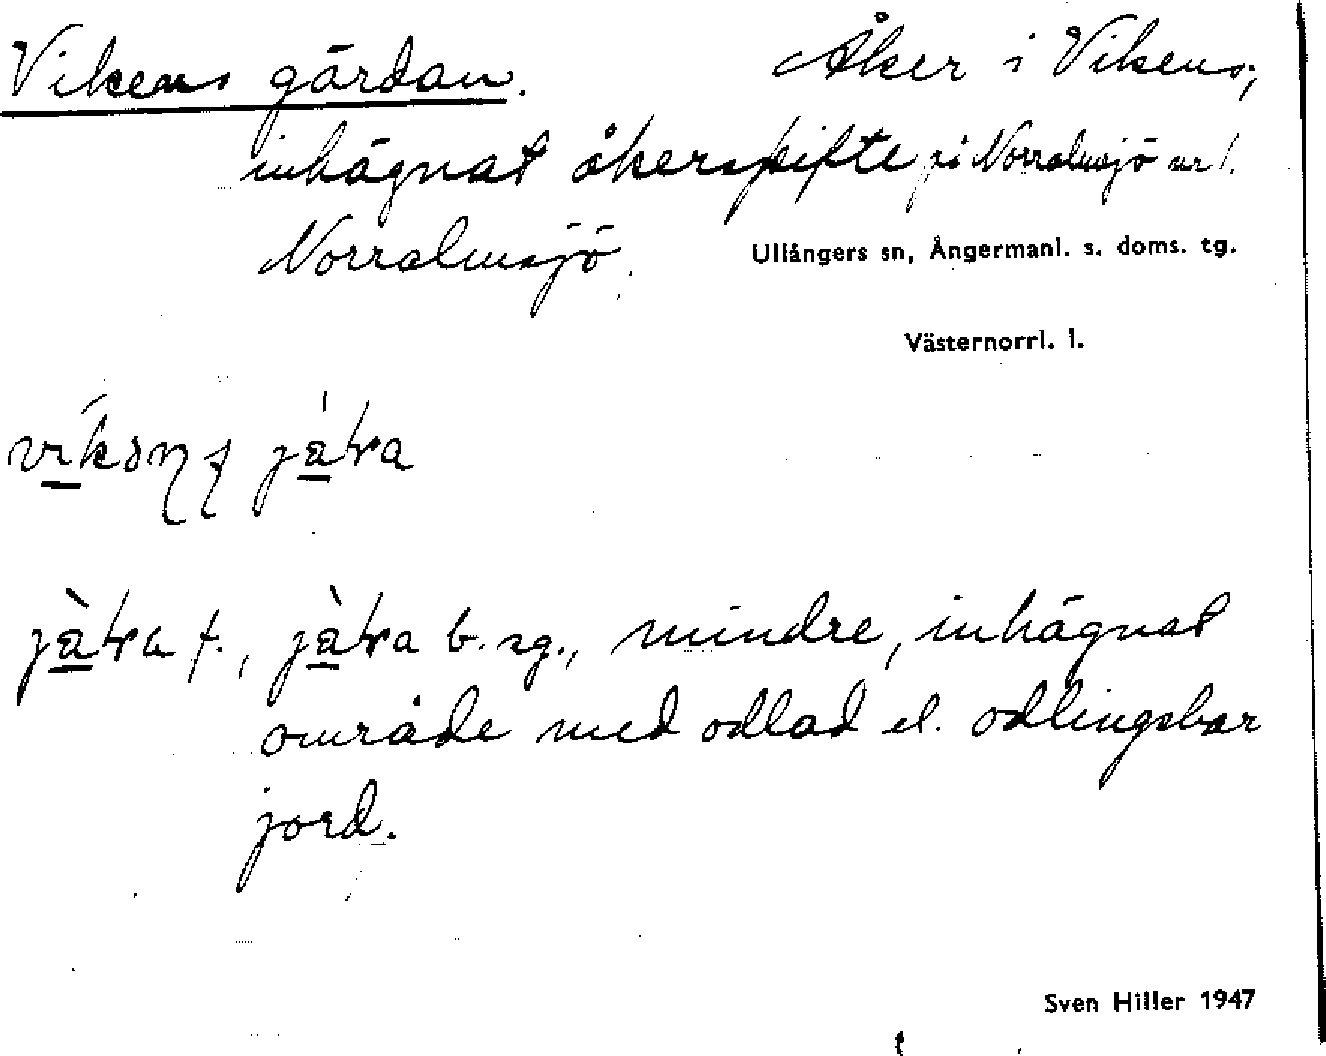 Vikens gärdan. Åker i Viken,
inhägnat åkerskifte på Norralmsjö nr 1.
Norralmsjö. Ullångers sn, Ångermanl. s. doms. tg.
Västernorrl. l.
jära
f., b. sg., mindre, inhägnat
område med odlad el. odlingsbar
jord.
Sven Hiller 1947